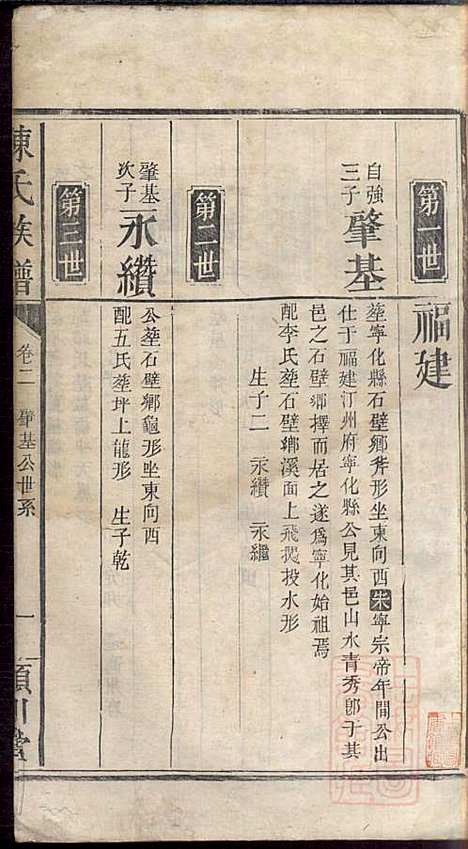 第一世
福建
自強
三子
肇基
塟寧化縣石壁鄉斧形坐東向西宋寧宗帝年間公出
仕于福建汀州府寧化縣公見其邑山水青秀卽于其
邑之石壁鄉擇而居之遂爲寧化始祖焉
配李氏塟石壁鄉溪面上飛鵝投水形
生子二 永纘 永繼
第二世
肇基
次子
永纘
公塟石壁鄉龜形坐東向酉
配五氏塟坪上龍形 生子乾
第三世
陳氏族譜
卷二
肇基公世系
一
潁川堂